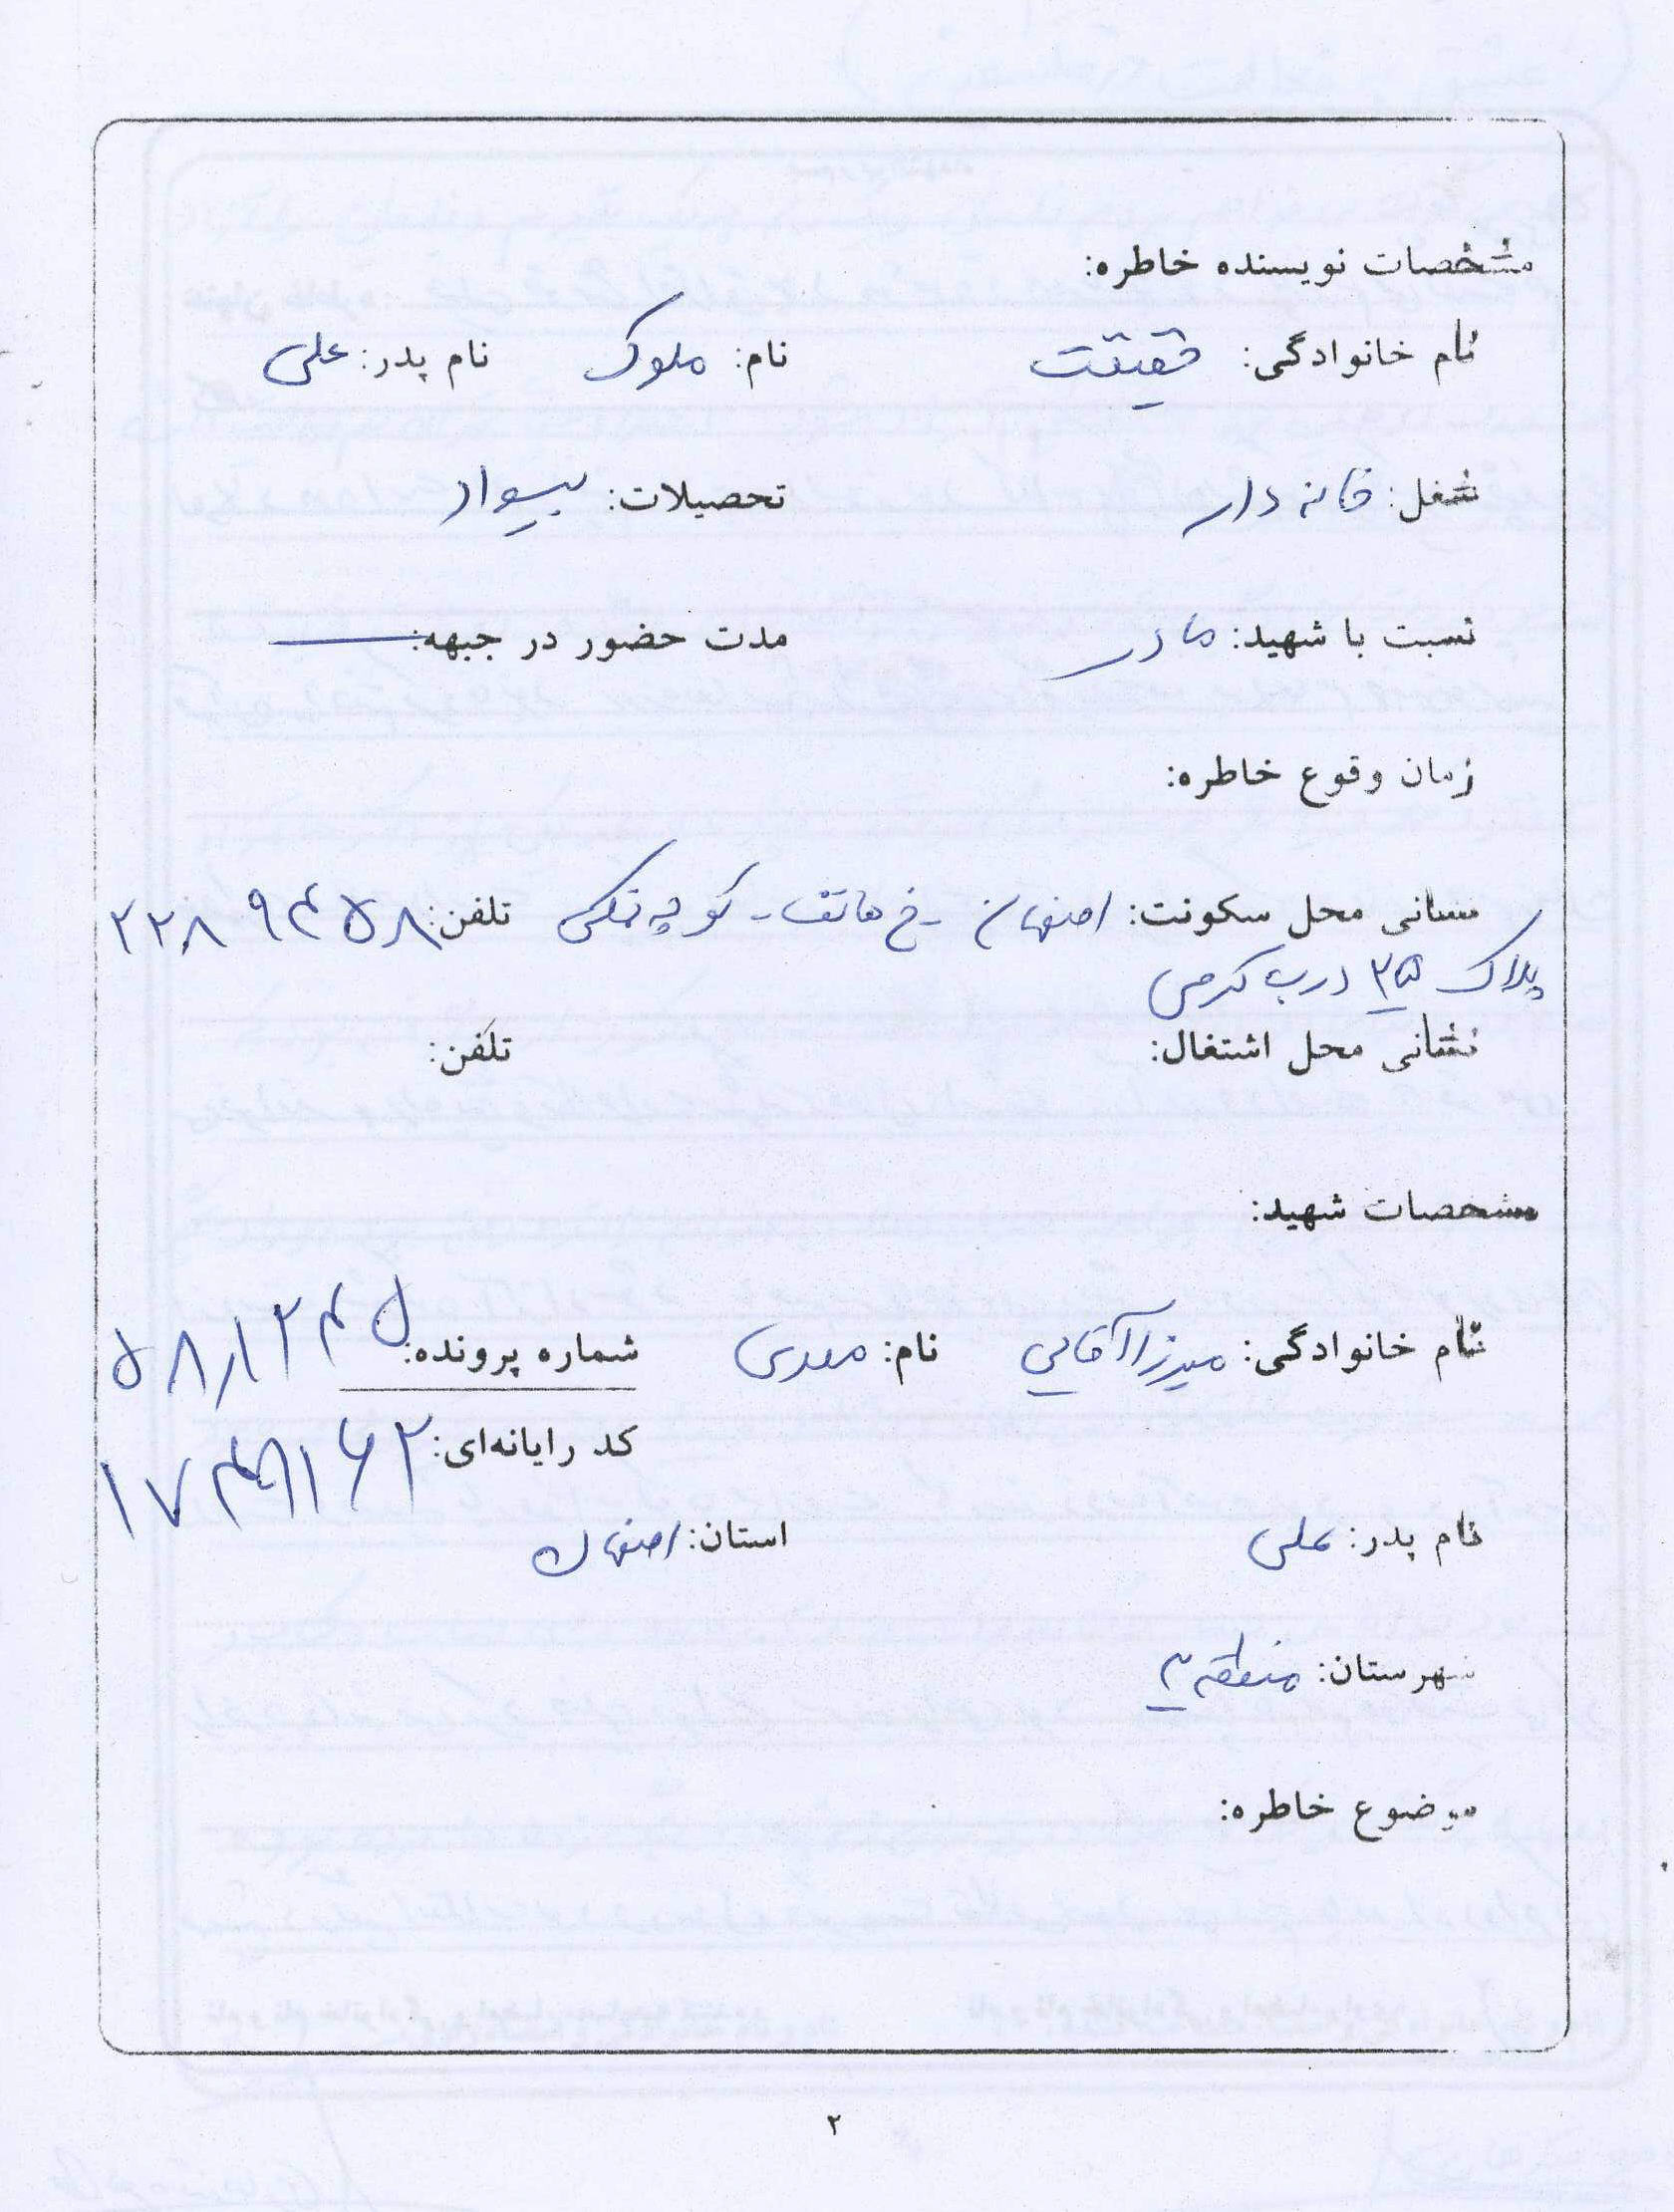 مشخصات نویسنده خاطره:
نام خانوادگی: حقیقت نام: ملوک نام پدر: علی
شغل: خانه دار تحصیلات: بیسواد
نسبت با شهید: مادر مدت حضور در جبهه: ــــ
زمان وقوع خاطره:
نشانی محل سکونت: اصفهان - خ هاتف - کوچه تلفن: ۲۲۸۹۴۵۸
پلاک ۲۵ درب کرمی
نشانی محل اشتغال: تلفن:
مشخصات شهید:
نام خانوادگی: میرزاآقایی نام: مهدی شماره پرونده: ۵۸۱۲۴۵
کد رایانه‌ای:
نام پدر: علی استان: اصفهان
شهرستان: منطقه ۲
موضوع خاطره:
۲